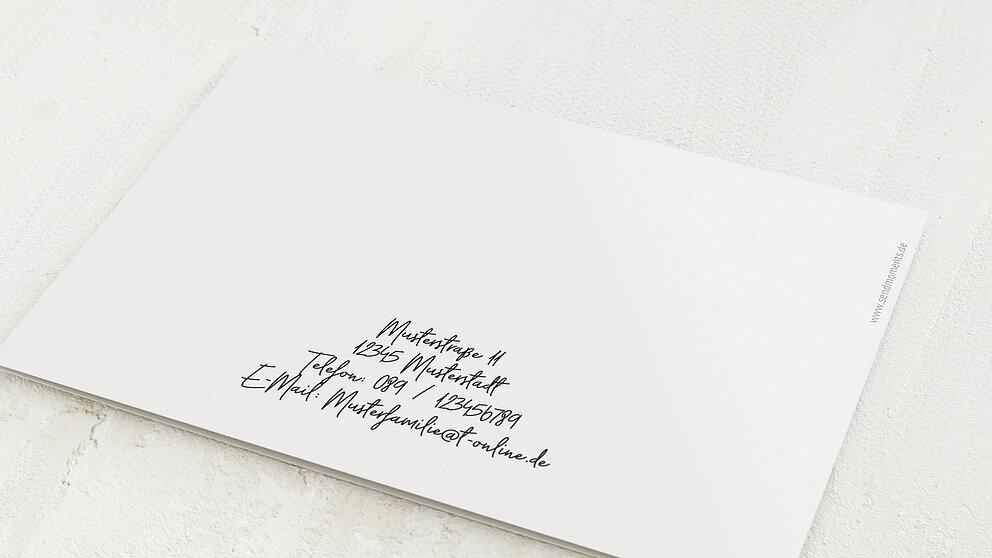 Musterstraße 11
12345 Musterstadt
Telefon: 089 / 123456789
E-Mail: Musterfamilie@t-online.de
www.sendmoments.de